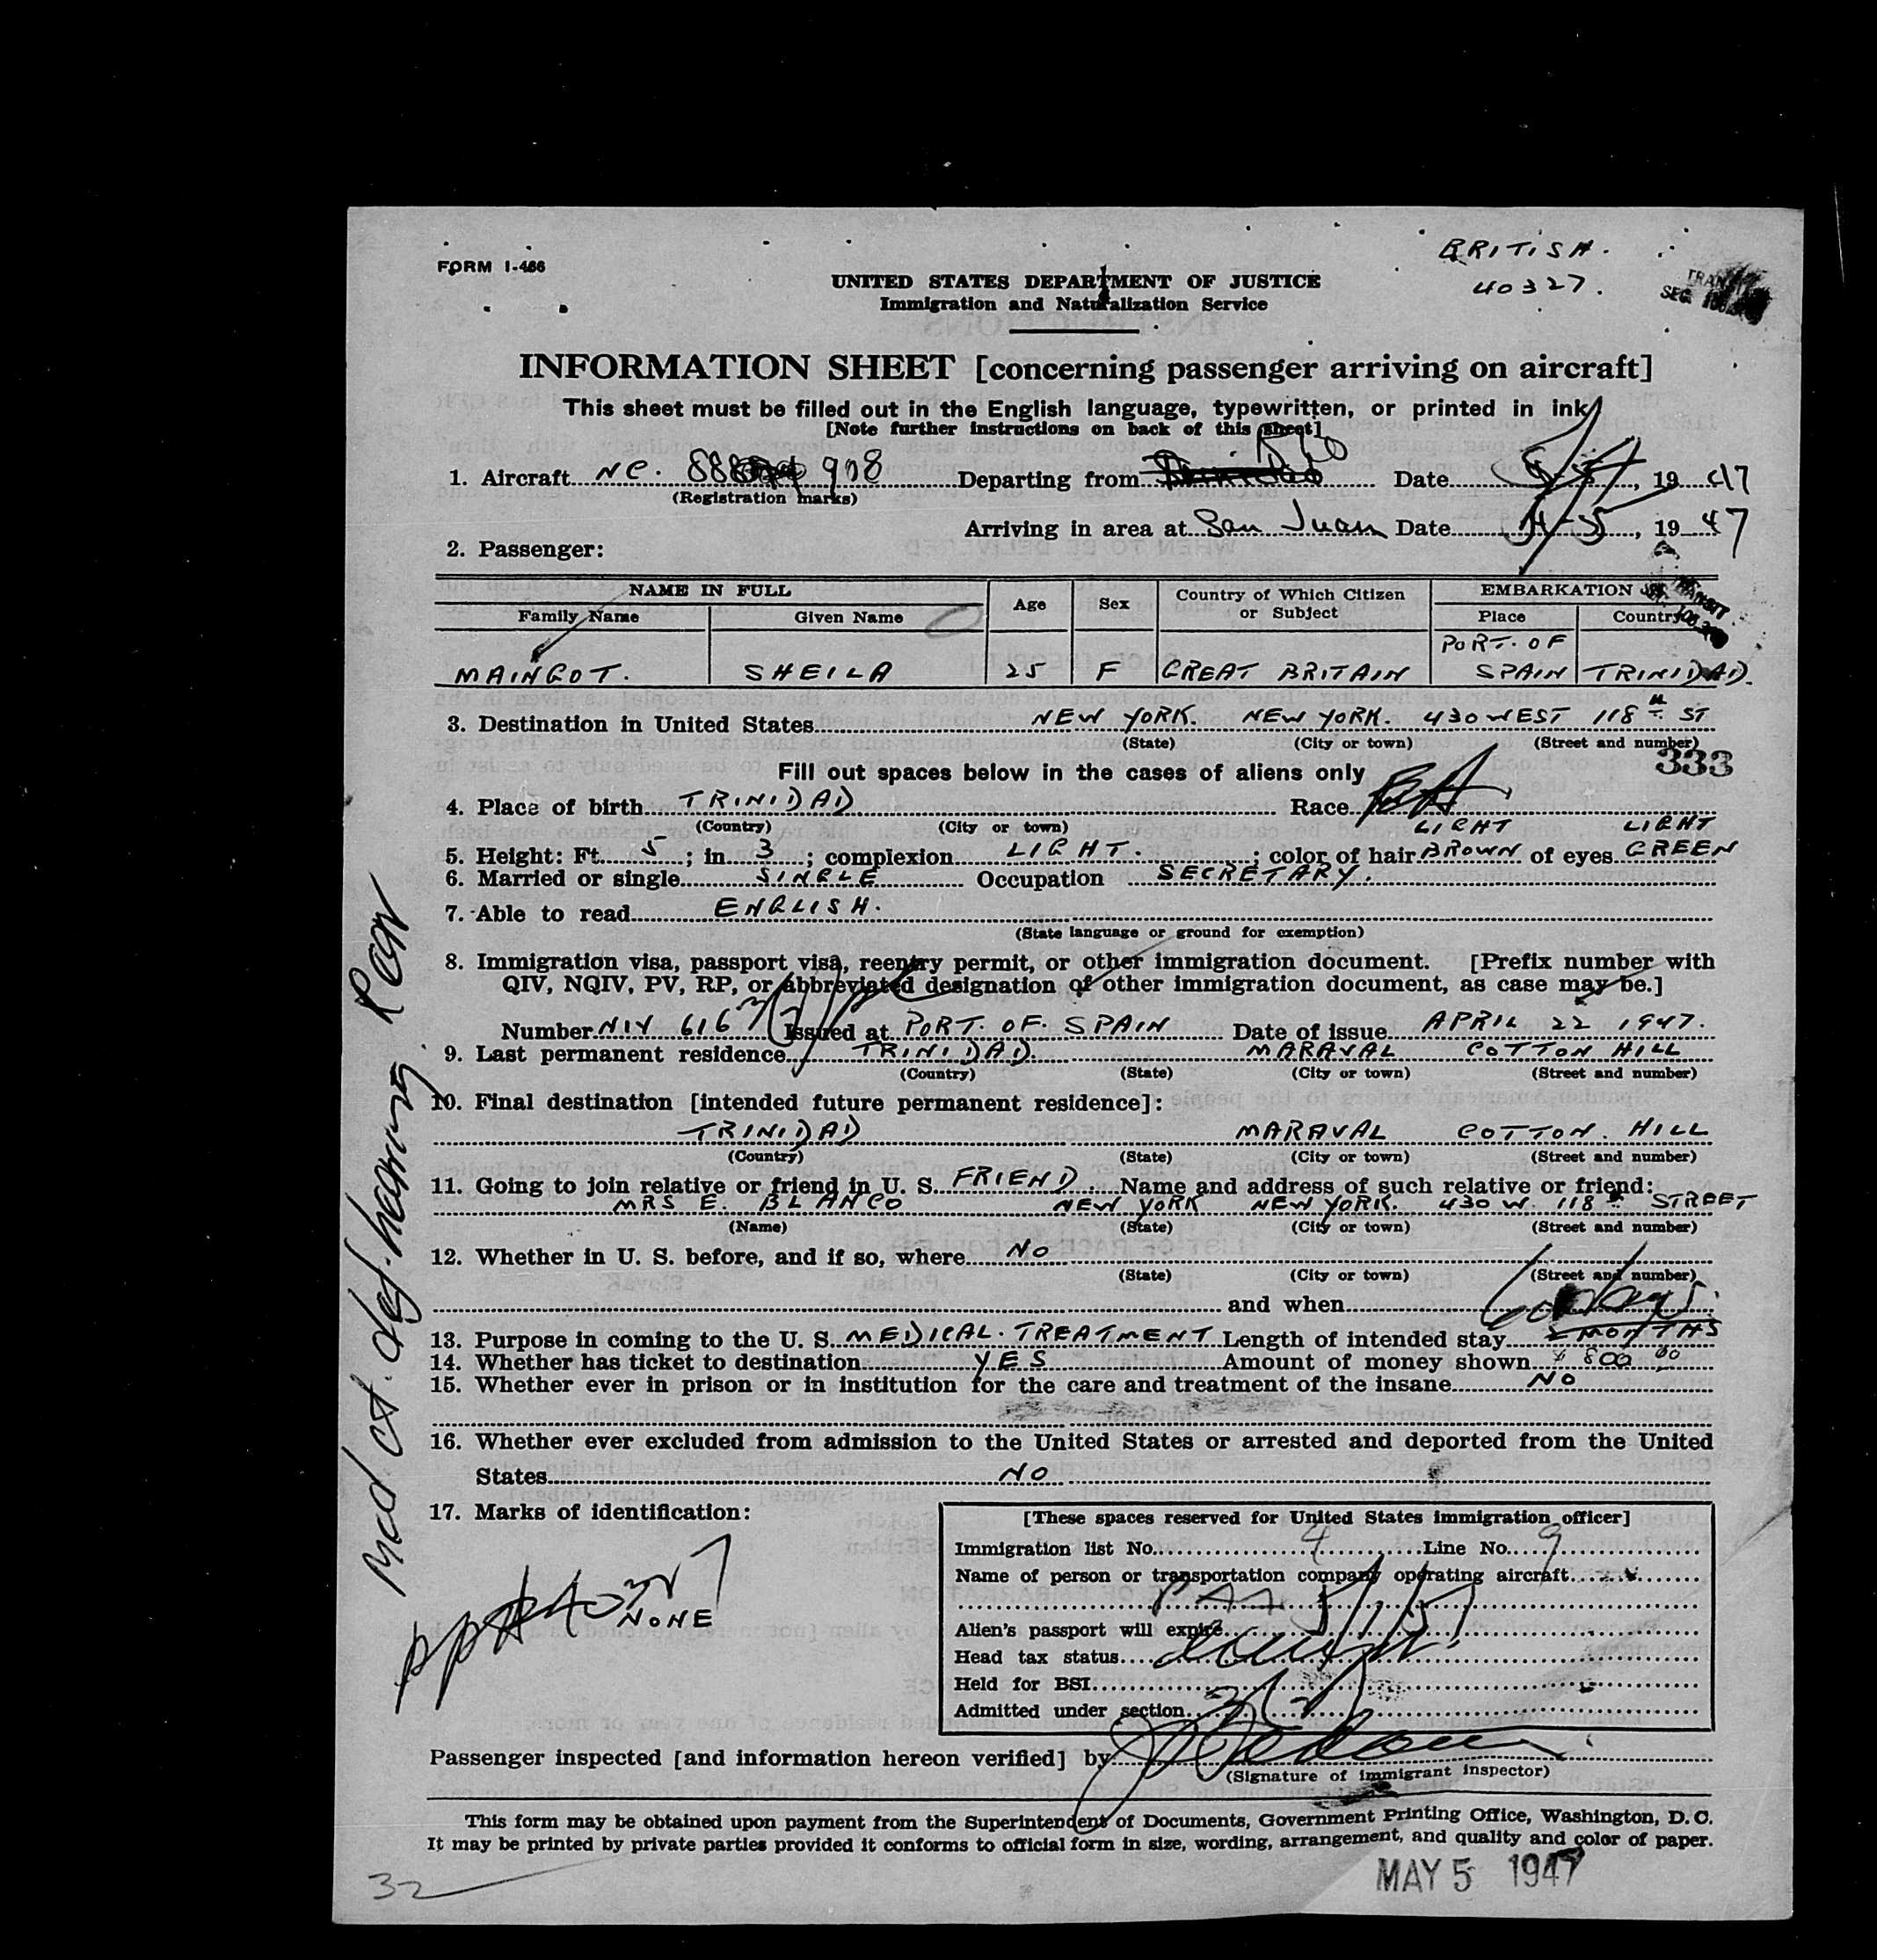 FORM I-466
BRITISH.
40327.
UNITED STATES DEPARTMENT OF JUSTICE
Immigration and Naturalization Service
INFORMATION SHEET [concerning passenger arriving on aircraft]
This sheet must be filled out in the English language, typewritten, or printed in ink
[Note further instructions on back of this sheet]
1. Aircraft NC. 88 908 Departing from Date , 19 47
(Registration marks)
Arriving in area at San Juan Date , 19 47
2. Passenger:
NAME IN FULL Age Sex Country of Which Citizen or Subject EMBARKATION
Family Name Given Name Place Country
MAINGOT. SHEILA 25 F GREAT BRITAIN PORT. OF SPAIN TRINIDAD.
3. Destination in United States NEW YORK. NEW YORK. 430 WEST 118TH ST
(State) (City or town) (Street and number)
333
Fill out spaces below in the cases of aliens only
4. Place of birth TRINIDAD Race
(Country) (City or town)
LIGHT LIGHT
5. Height: Ft. 5 ; in. 3 ; complexion LIGHT. ; color of hair BROWN of eyes GREEN
6. Married or single SINGLE Occupation SECRETARY.
7. Able to read ENGLISH.
(State language or ground for exemption)
8. Immigration visa, passport visa, reentry permit, or other immigration document. [Prefix number with
QIV, NQIV, PV, RP, or abbreviated designation of other immigration document, as case may be.]
Number NIV 616 3(2) Issued at PORT. OF. SPAIN Date of issue APRIL 22 1947.
9. Last permanent residence TRINIDAD. MARAVAL COTTON HILL
(Country) (State) (City or town) (Street and number)
10. Final destination [intended future permanent residence]:
TRINIDAD MARAVAL COTTON. HILL
(Country) (State) (City or town) (Street and number)
11. Going to join relative or friend in U. S. FRIEND. Name and address of such relative or friend:
MRS E. BLANCO NEW YORK NEW YORK. 430 W. 118TH STREET
(Name) (State) (City or town) (Street and number)
12. Whether in U. S. before, and if so, where NO
(State) (City or town) (Street and number)
and when
days.
13. Purpose in coming to the U. S. MEDICAL. TREATMENT Length of intended stay 2 MONTHS
14. Whether has ticket to destination YES Amount of money shown $ 800 00
15. Whether ever in prison or in institution for the care and treatment of the insane NO
16. Whether ever excluded from admission to the United States or arrested and deported from the United
States NO
17. Marks of identification:
NONE
[These spaces reserved for United States immigration officer]
Immigration list No. 4 Line No. 9
Name of person or transportation company operating aircraft
PAA
Alien's passport will expire 5/1/51
Head tax status exempt
Held for BSI
Admitted under section 3(2)
Passenger inspected [and information hereon verified] by
(Signature of immigrant inspector)
This form may be obtained upon payment from the Superintendent of Documents, Government Printing Office, Washington, D. C.
It may be printed by private parties provided it conforms to official form in size, wording, arrangement, and quality and color of paper.
MAY 5 1947
32
Med ct. def. hearing